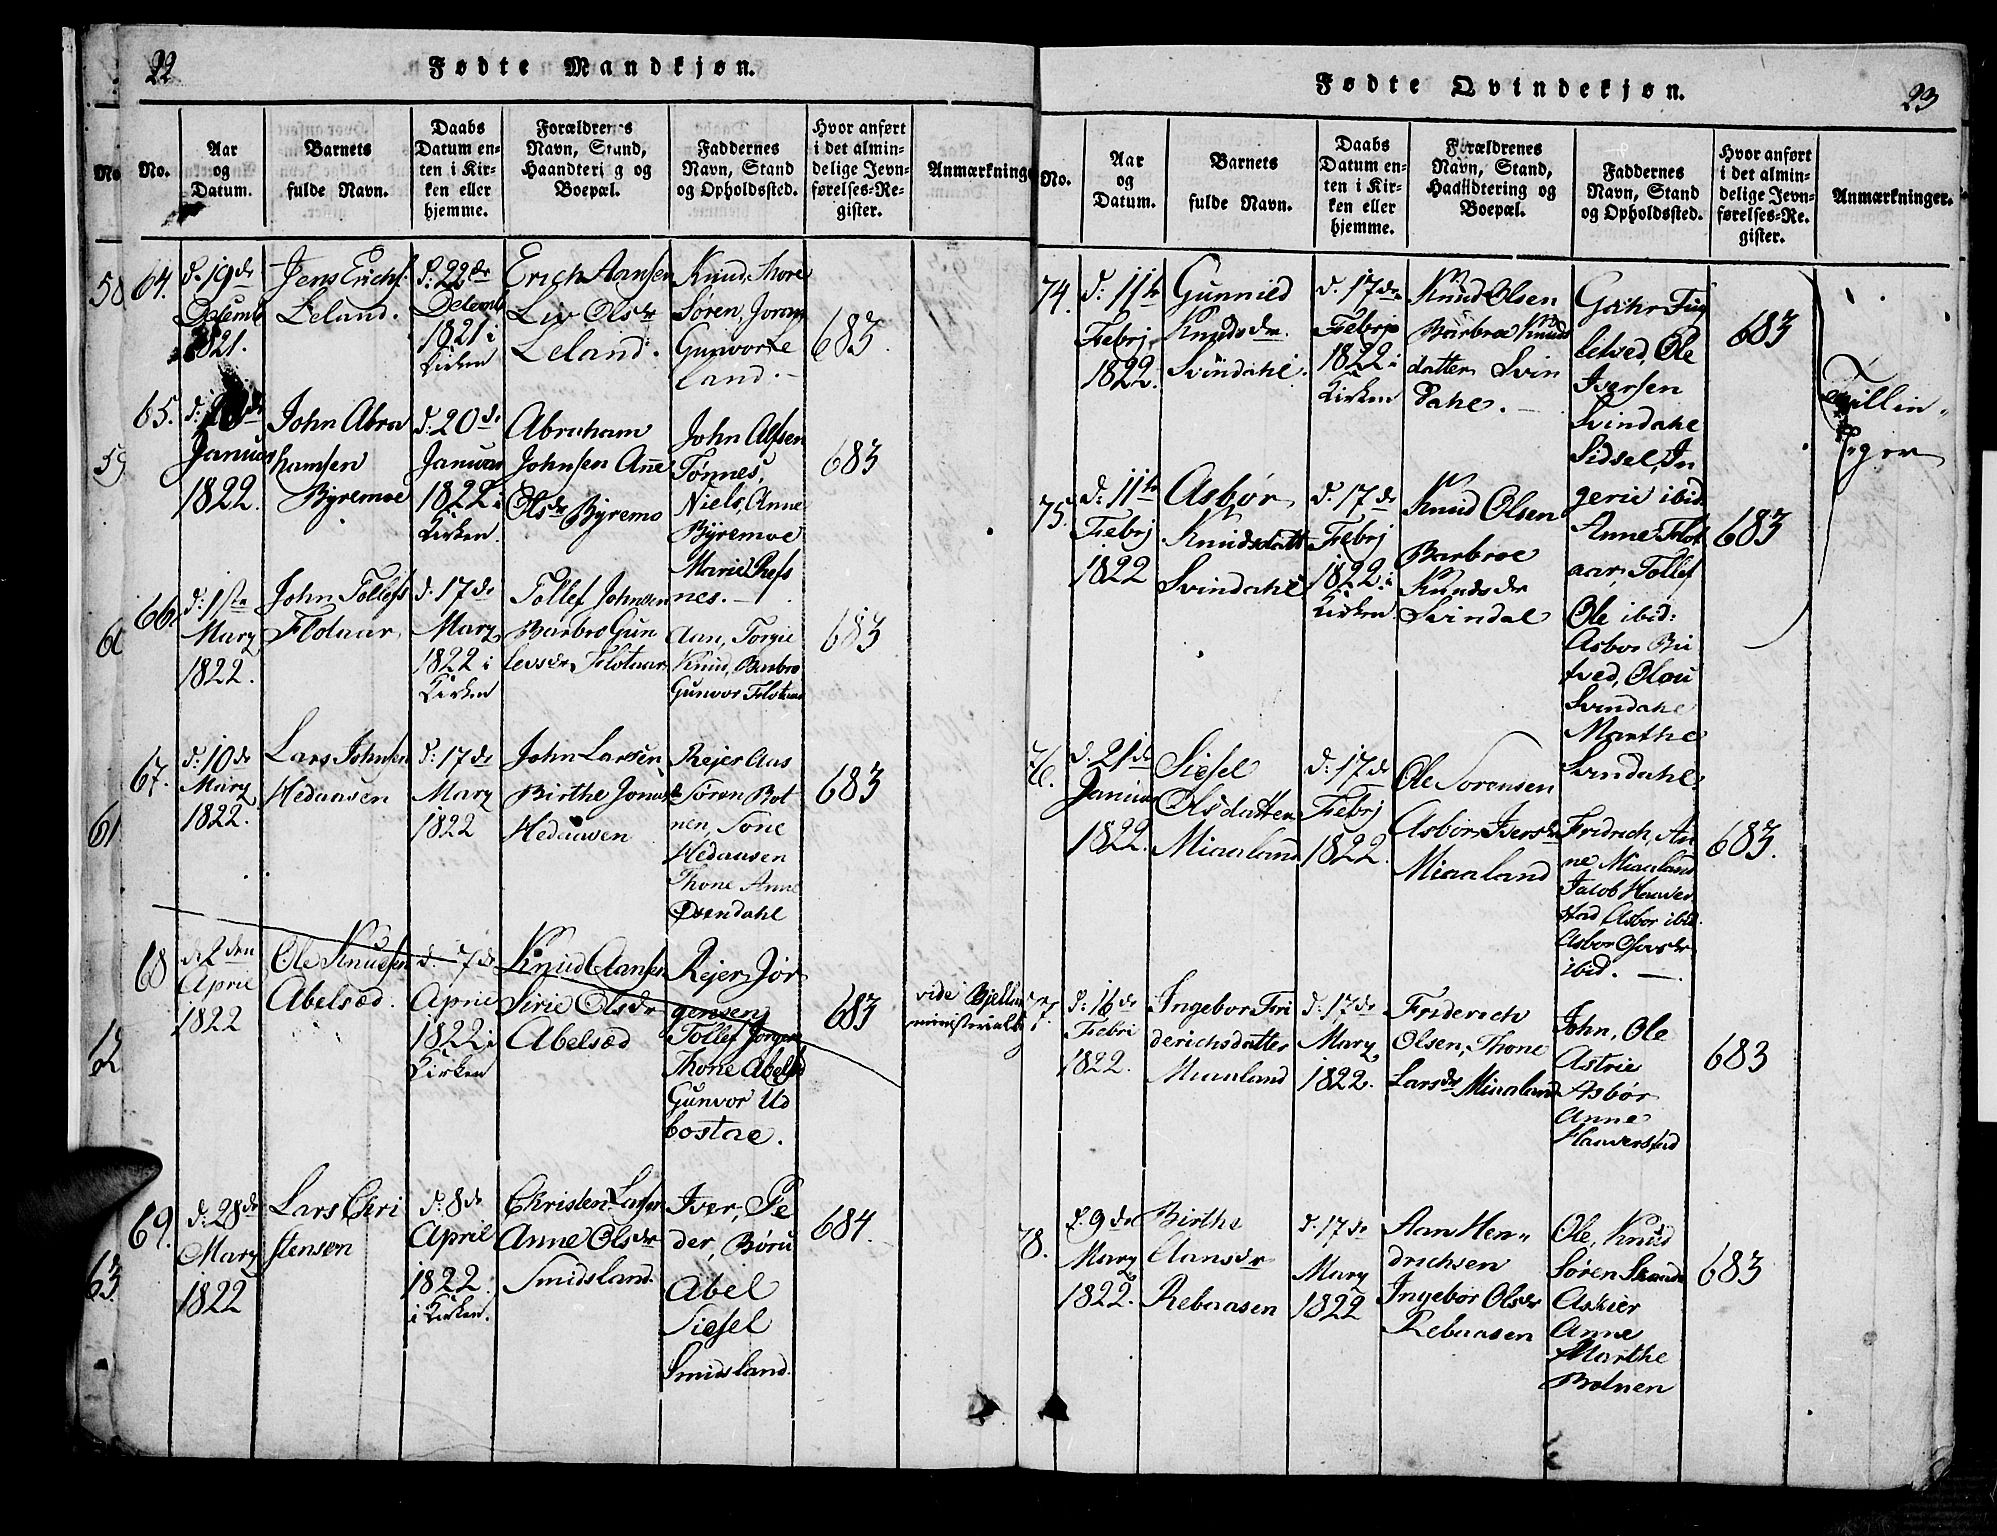 22
Fødte Mandkjøn.
No.
No.
Aar
og
Datum.
Barnets
fulde Navn.
Daabs
Datum en-
ten i Kir-
ken eller
hjemme.
Forældrenes
Navn, Stand,
Haandtering og
Boepæl.
Faddernes
Navn, Stand
og Opholdssted.
Hvor anført
i det almin-
delige Jevn-
førelses-Re-
gister.
Anmærkninge
58
64.
d. 19de
Decemb
1821.
Jens Erichs.
Leland.
d. 22de
Decemb
1821 i
Kirken
Erich Aansen
Liv Olsdr
Leland.
Knud, Thore
Søren, Joran
Gunvor Le
land.
683.
59
65.
Januar
1822.
John Abra
hamsen
Byremoe
d. 20de
Januar
1822 i
Kirken
Abraham
Johnsen Ane
Olsdr Byremo
John Alfsen
Tønnes,
Niels, Anne
Byremoe
Marie Refs
nes.
683
60
66.
d. 1ste
Marz
1822.
John Tollefs
Flotaar
d. 17de
Marz
1822 i
Kirken
Tollef Johnsen
Barbro Gun
levsdr Flotaar
Aan, Torgie
Knud, Barbro
Gunvor Flotaar
683
61
67.
d. 10de
Marz
1822.
Lars Johnsen
Hedaasen
d. 17de
Marz
1822
John Larsen
Birthe Jonsdr
Hedaasen
Rejer Aas
Søren Bot
nen, Tone
Hedaasen
Thone Anne
Øsendahl
683
62
68
d. 2den
April
1822
Ole Knudsen
Abelsæd.
d. 7de
April
1822 i
Kirken
Knud Aansen
Sirie Olsdr
Abelsæd
Rejer Jør
gensen
Tollef Jørgens
Thone Abelsæd
Gunvor Ud
bostae.
683
vide Bjellan
ministerialb
63
69.
d. 28de
Marz
1822
Lars Chri
stensen
d. 8de
April
1822.
i Kirken.
Christen Larsen
Anne Olsdr
Smidsland
Iver, Pe
der, Børu
Abel
Sidsel
Smidsland.
684.
23
Fødte Qvindekjøn.
No.
Aar
og
Datum.
Barnets
fulde Navn.
Daabs
Datum en-
ten i Kir-
ken eller
hjemme.
Forældrenes
Navn, Stand,
Haandtering og
Boepæl.
Faddernes
Navn, Stand
og Opholdssted.
Hvor anført
i det almin-
delige Jevn-
førelses-Re-
gister.
Anmærkninger.
74.
d. 11te
Febrj.
1822.
Gunnild
Knudsdr.
Svindahl.
d. 17de
Febrj
1822 i
Kirken
Knud Olsen
Barbroe Knuds
datter Svin
dahl.
Gahr Fug
letved, Ole
Iversen
Svindahl
Sidsel, In
gerie ibid.
683
Tvillin-
ger
75.
d. 11te
Febrj
1822
Asbør
Knudsdatt
Svindahl
d. 17de
Febrj
1822 i
Kirken
Knud Olsen
Barbroe
Knudsdr
Svindal
Anne Flot
aar, Tollef
Ole ibid:
Asbor Bu
tved, Olou
Svindahl
Marthe
Svindahl.
683
76.
d. 21de
Januar
1822.
Sidsel
Olsdatter
Miaaland
d. 17de
Febrj
1822.
Ole Sorensen
Asbor Iversdr
Miaaland
Fridrich, An
ne Miaaland
Jacob Hauver
stad, Asbor ibid.
Asbor Olsdr
ibid.
683.
77.
d. 16de
Febri
1822.
Ingebor Fri
derichsdatter
Miaaland
d. 17de
Marz
1822.
Friderich
Olsen, Thone
Larsdr Miaaland
John, Ole
Astrie
Asbør
Anne
Hauverstad
683
78.
d. 9de
Marz
1822.
Birthe
Aansdr
Rebaasen
d. 17de
Marz
1822
Aan Hen-
drichsen
Ingebor Olsdr
Rebaasen
Ole, Knud
Søren Strand
Askier
Anne
Marthe
Botnen
683